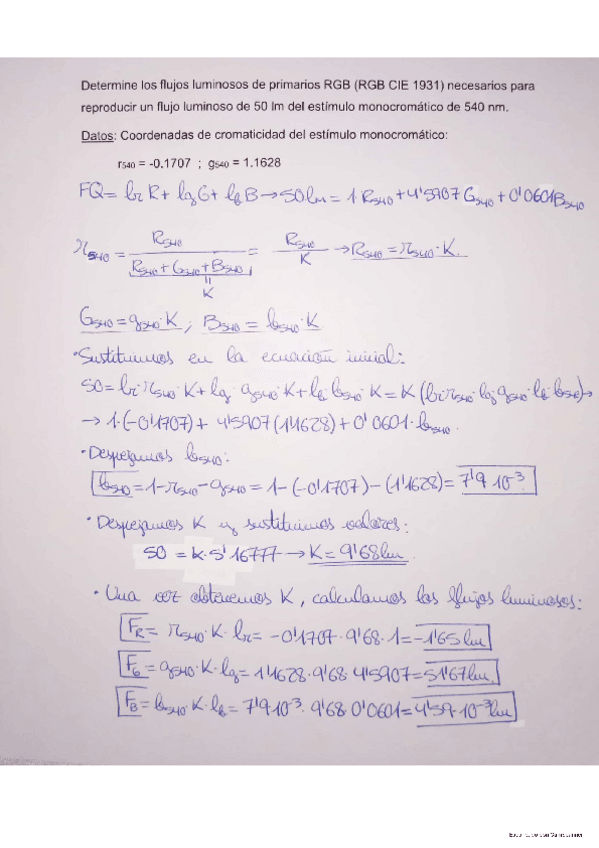 Determine los flujos luminosos de primarios RGB (RGB CIE 1931) necesarios para
reproducir un flujo luminoso de 50 lm del estímulo monocromático de 540 nm.
Datos: Coordenadas de cromaticidad del estímulo monocromático:
r540 = -0.1707 ; g540 = 1.1628
FQ = lr R + lg G + lb B → 50lm = 1 R540 + 4'5907 G540 + 0'0601 B540
r540 = R540 / (R540 + G540 + B540) = R540 / K → R540 = r540 · K.
=
K
G540 = g540 · K ; B540 = b540 · K
· Sustituimos en la ecuación inicial:
50 = lr · r540 · K + lg · g540 · K + lb b540 · K = K (lr r540 · lg g540 · lb · b540) →
→ 1 · (-0'1707) + 4'5907 (1'1628) + 0'0601 · b540.
· Despejamos b540:
b540 = 1 - r540 - g540 = 1 - (-0'1707) - (1'1628) = 7'9 · 10⁻³
· Despejamos K y sustituimos valores:
50 = K · 5'16777 → K = 9'68 lm.
· Una vez obtenemos K, calculamos los flujos luminosos:
FR = r540 · K · lr = -0'1707 · 9'68 · 1 = -1'65 lm
FG = g540 · K · lg = 1'1628 · 9'68 · 4'5907 = 51'67 lm.
FB = b540 · K · lb = 7'9 · 10⁻³ · 9'68 · 0'0601 = 4'59 · 10⁻³ lm